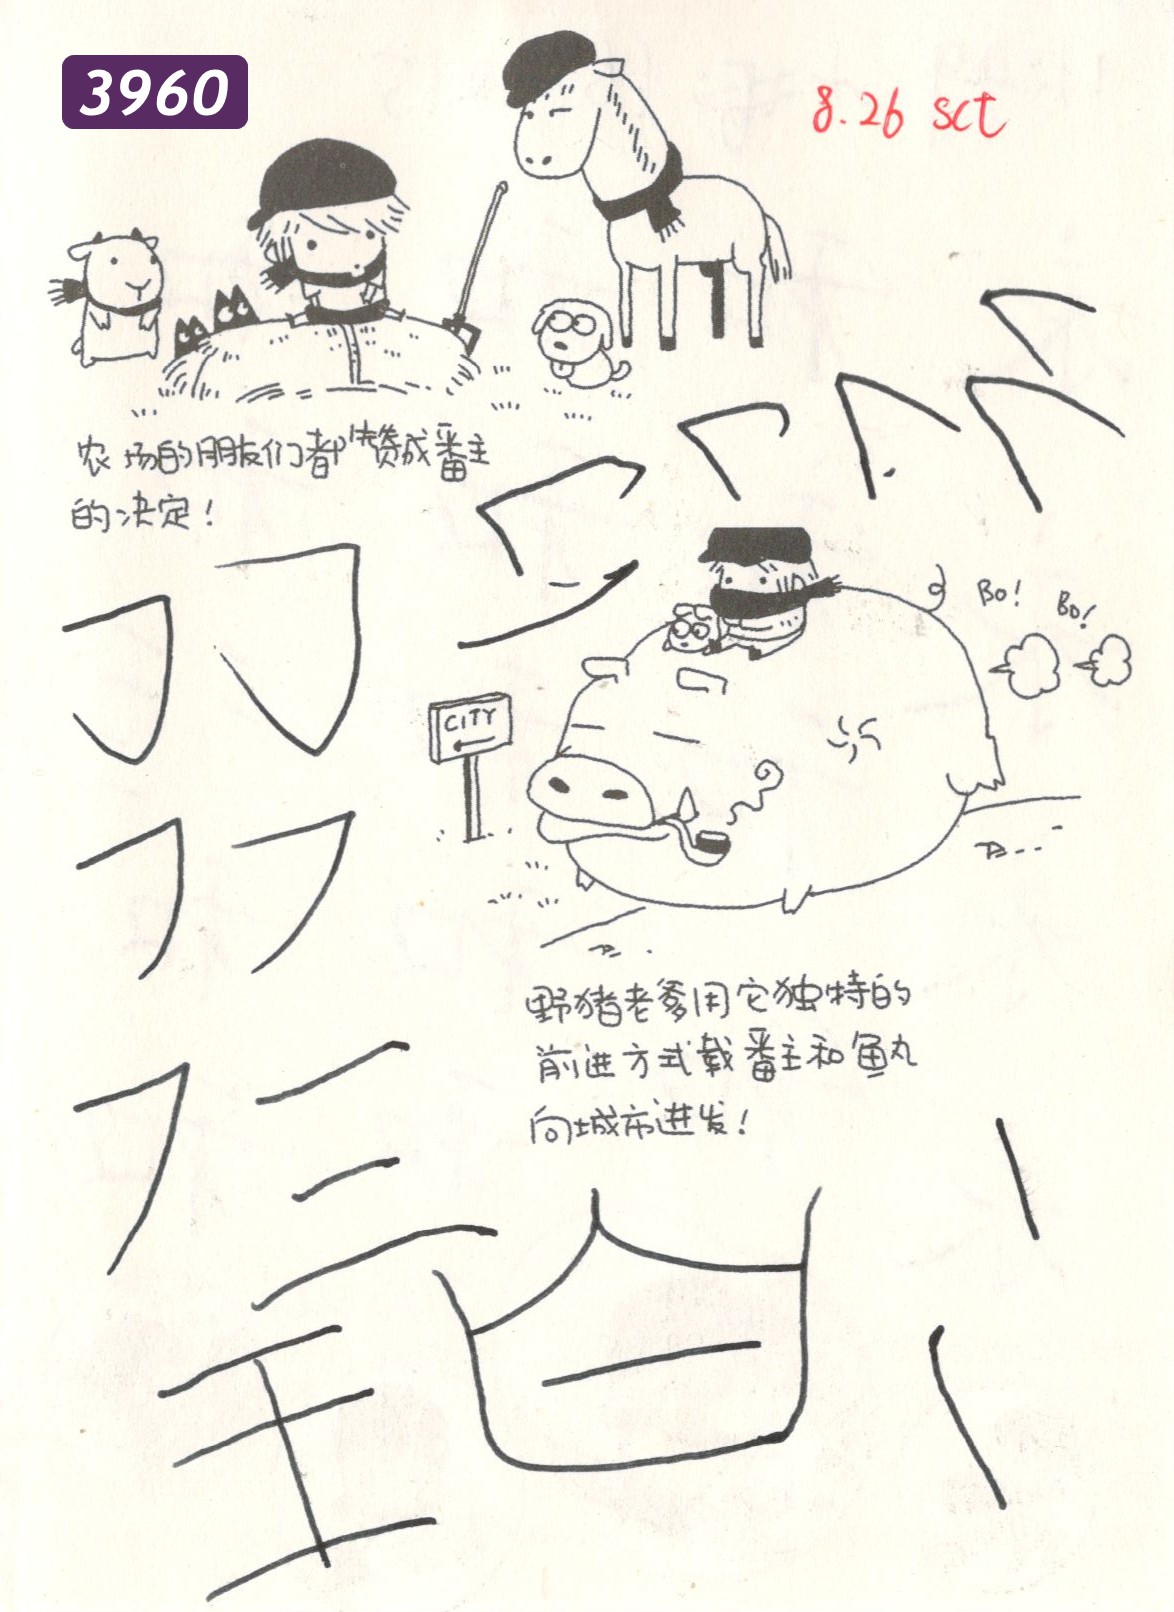 3960
8.26 sct
农场的朋友们都赞成番主
的决定！
Bo!
Bo!
CITY
野猪老爹用它独特的
前进方式载番主和鱼丸
向城市进发！